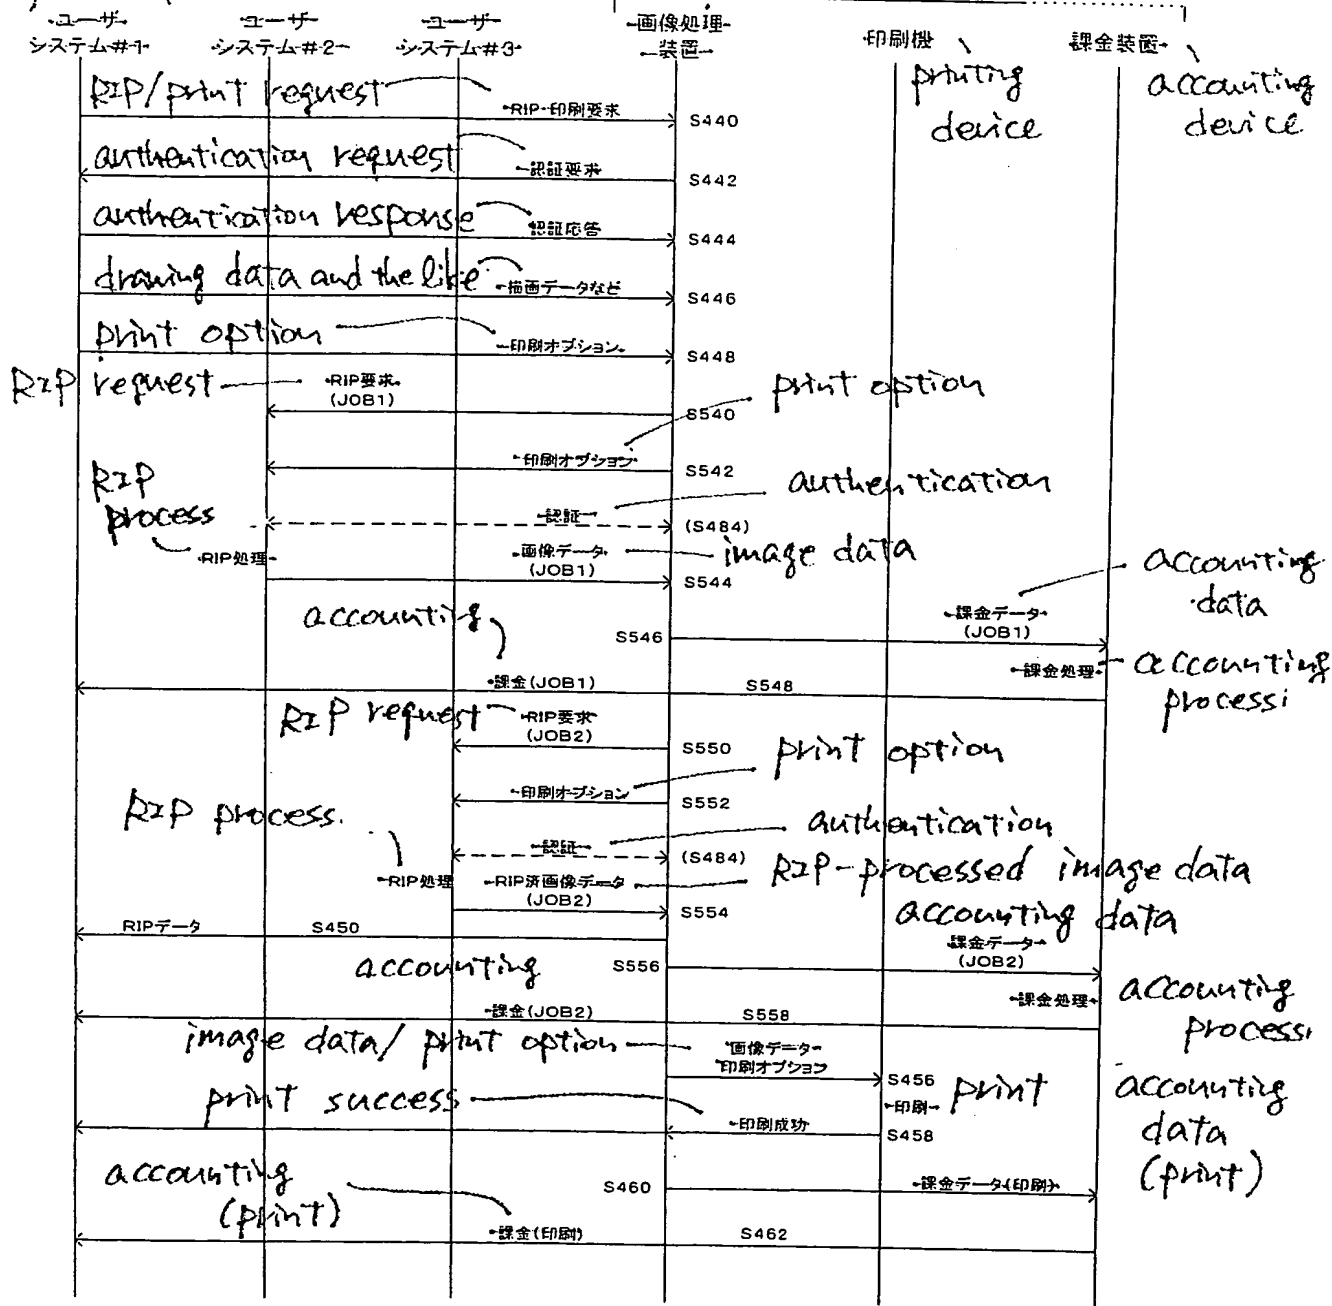 ユーザ システム#1
ユーザ システム#2
ユーザ システム#3
画像処理 装置
印刷機
課金装置
printing device
accounting device
RIP/print request
RIP・印刷要求
S440
authentication request
認証要求
S442
authentication response
認証応答
S444
drawing data and the like
描画データなど
S446
print option
印刷オプション
S448
RIP request
RIP要求
(JOB1)
S540
print option
印刷オプション
S542
RIP process
authentication
認証
(S484)
RIP処理
画像データ
(JOB1)
image data
S544
accounting data
課金データ
(JOB1)
accounting
S546
課金処理
accounting processi
課金(JOB1)
S548
RIP request
RIP要求
(JOB2)
S550
print option
印刷オプション
S552
RIP process
authentication
認証
(S484)
RIP処理
RIP済画像データ
(JOB2)
RIP-processed image data
S554
accounting data
RIPデータ
S450
課金データ
(JOB2)
accounting
S556
課金処理
accounting processi
課金(JOB2)
S558
image data/ print option
画像データ
印刷オプション
S456
print success
印刷
print
印刷成功
S458
accounting data (print)
accounting (print)
S460
課金データ(印刷)
課金(印刷)
S462